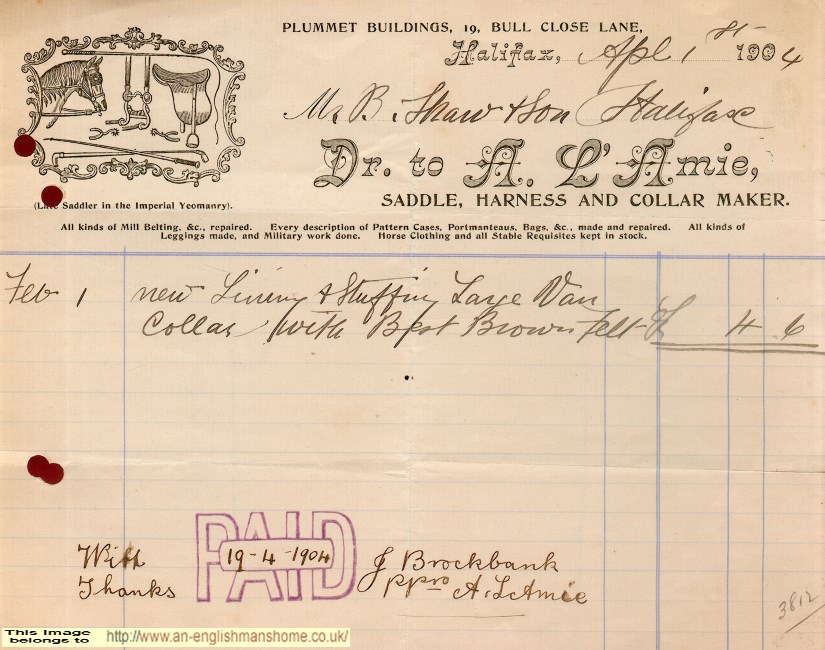 PLUMMET BUILDINGS, 19, BULL CLOSE LANE,
Halifax, Apl 1st 1904
Mr B. Shaw & Son Halifax
Dr. to A. L'Amie,
SADDLE, HARNESS AND COLLAR MAKER.
(Late Saddler in the Imperial Yeomanry).
All kinds of Mill Belting, &c., repaired. Every description of Pattern Cases, Portmanteaus, Bags, &c., made and repaired. All kinds of
Leggings made, and Military work done. Horse Clothing and all Stable Requisites kept in stock.
Feb 1 new Lining & Stuffing Large Van
Collar with Best Brown Felt 4 6
PAID
19-4-1904
With
Thanks
J Brockbank
ppro A. L'Amie
3812
This Image
belongs to
http://www.an-englishmanshome.co.uk/